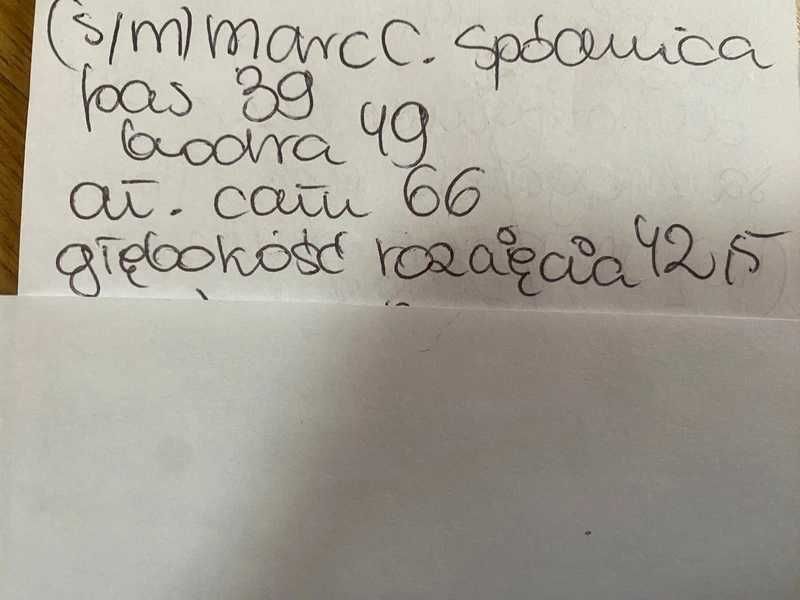 (S/M) Marc C. Spódnica
pas 39
biodra 49
dł. cału 66
głębokość rozcięcia 42,5